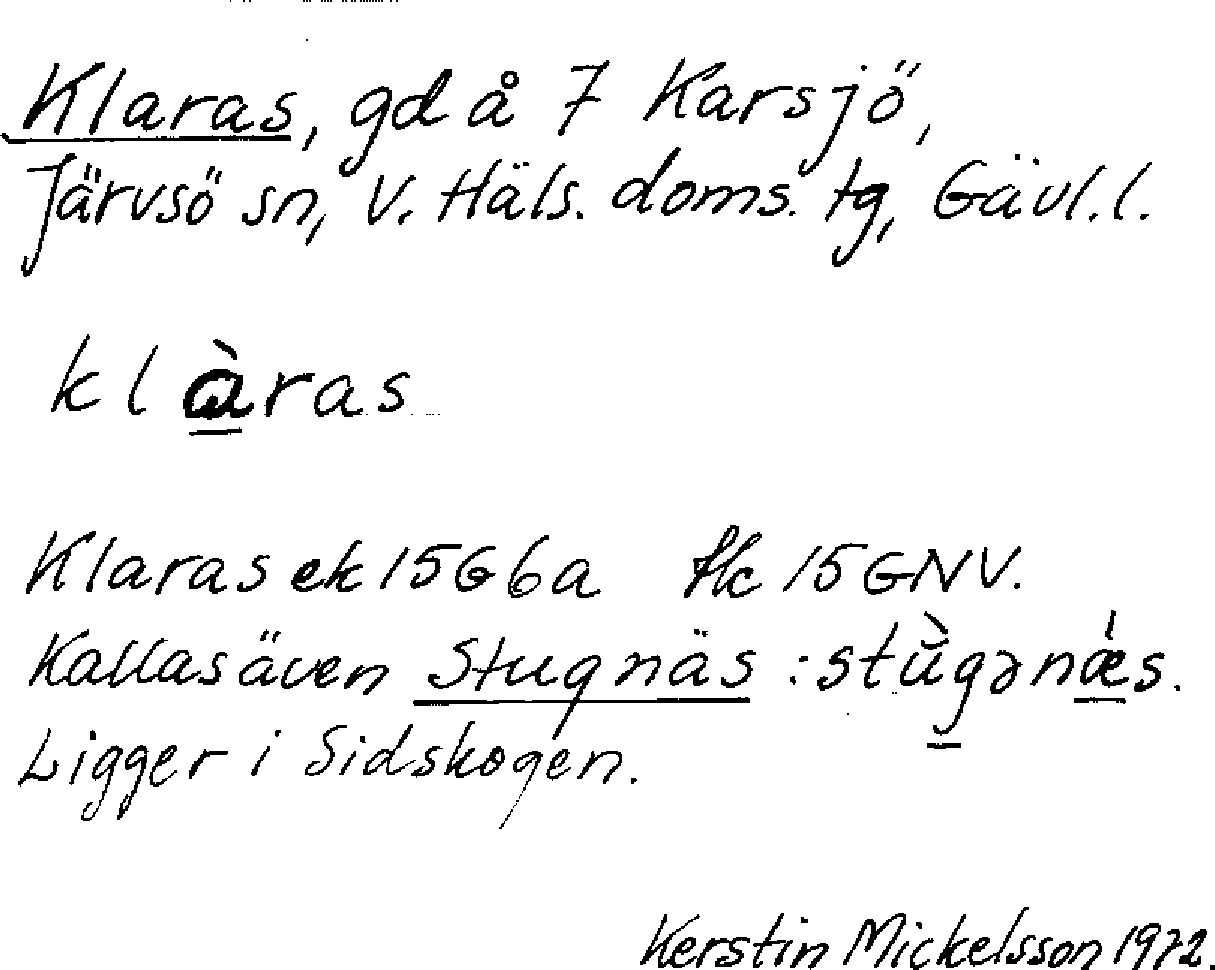 Klaras, gd å 7 Karsjö,
Järvsö sn, V. Häls. doms. tg, Gävl. l.
klàras
Klaras ek 15G6a tk 15GNV.
Kallas även Stugnäs : stùgənǽs.
Ligger i Sidskogen.
Kerstin Mickelsson 1972.